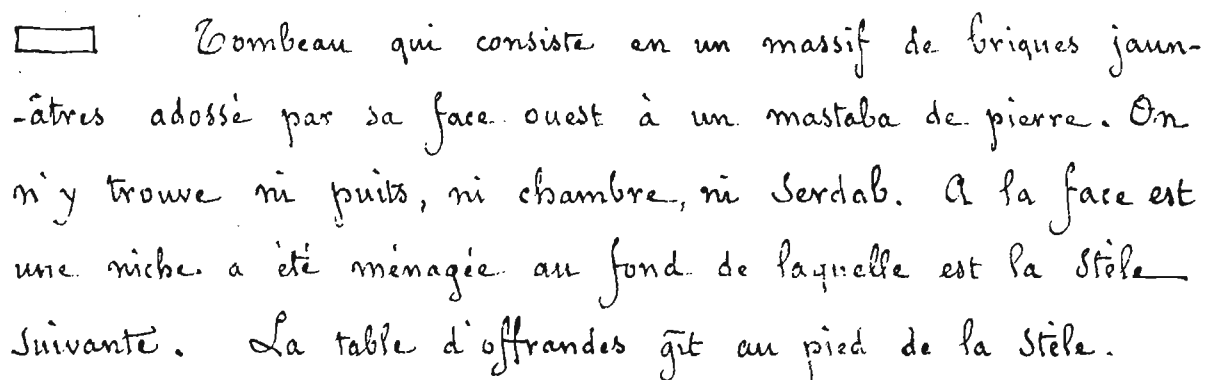 Tombeau qui consiste en un massif de briques jaun-
-âtres adossé par sa face ouest à un mastaba de pierre. On
n'y trouve ni puits, ni chambre, ni Serdab. A la face est
une niche a été ménagée au fond de laquelle est la Stèle
suivante. La table d'offrandes gît au pied de la Stèle.